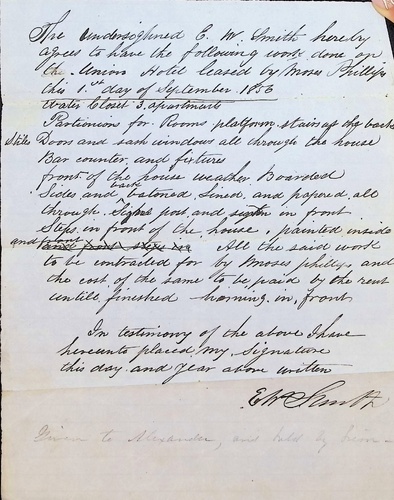 The undersighned E. W. Smith hereby
agrees to have the following work done on
the Union Hotel leased by Moses Phillips
this 1st day of September 1856
Water Closet 3 apartments
Partinion for Rooms platform stairs at the back
Stiles Doors and sash windows all through the house
Bar counter and fixtures
front of the house weather Boarded
Sides and back batoned, Lined and papered all
through. Sighn post and in front
Steps in front of the house, painted inside
and All the said work
to be contracted for by Moses phillips and
the cost of the same to be paid by the rent
untill finished in front
In testimony of the above I have
hereunto placed my Signature
this day and year above written
E W Smith
Given to Alexander, and held by him -